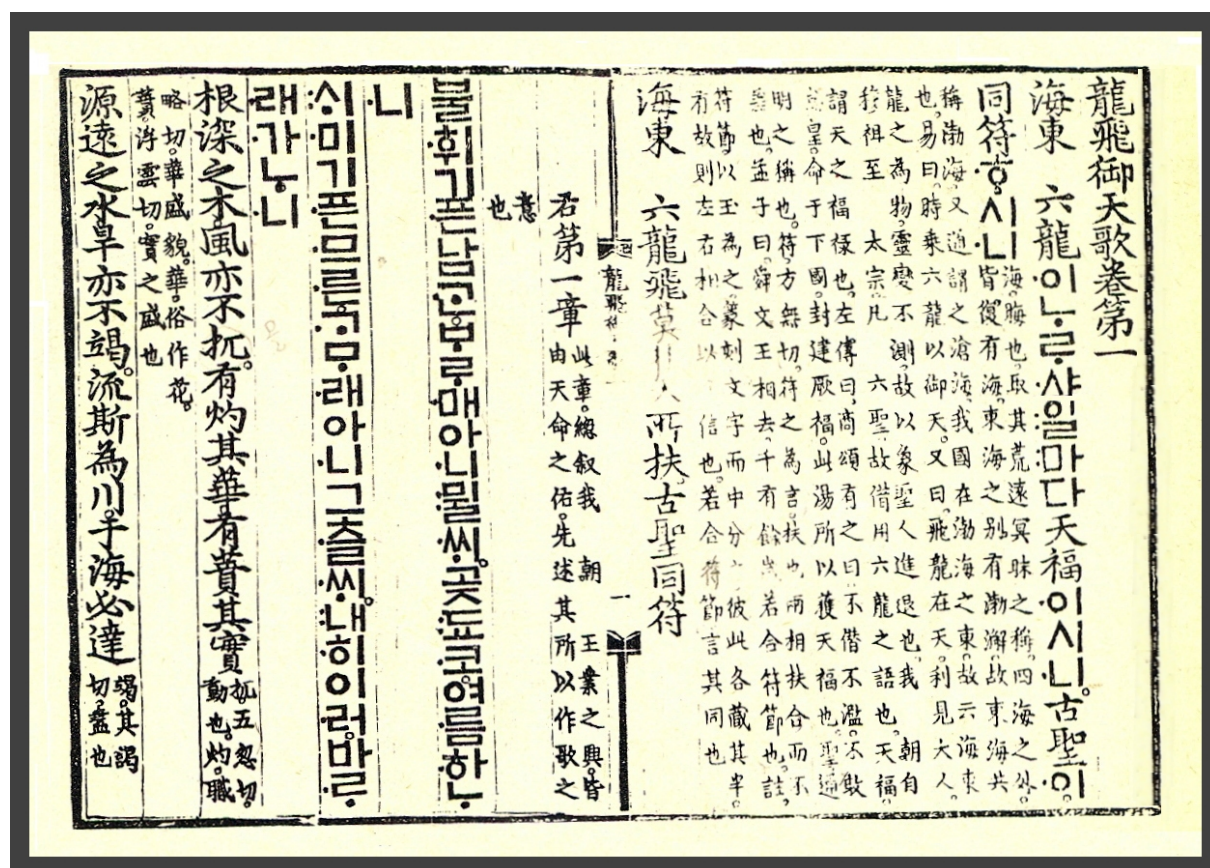 龍飛御天歌卷第一
海東 六龍·이ᄂᆞᄅᆞ·샤:일:마다天福·이시·니。古聖·이。
同符·ᄒᆞ시·니
海。晦也。取其荒遠冥昧之稱。四海之外。
皆復有海。東海之別有渤澥。故東海共
稱渤海。又通謂之滄海。我國在渤海之東。故云海東
也。易曰。時乘六龍以御天。又曰。飛龍在天。利見大人。
龍之為物。靈變不測。故以象聖人進退也。我 朝自
穆祖至 太宗。凡 六聖。故借用六龍之語也。天福。
謂天之福祿也。左傳曰。商頌有之曰。不僭不濫。不敢
皇。命于下國。封建厥福。此湯所以獲天福也。聖。通
明之稱也。符。方無切。符之為言。扶也。兩相扶合而不
差也。孟子曰。舜文王相去。千有餘歲。若合符節也。註。
符節。以玉為之。篆刻文字而中分之。彼此各藏其半。
有故則左右相合以 信也。若合符節。言其同也
海東 六龍飛莫 人所扶。古聖同符
龍飛 一
君第一章
此章。總叙我 朝 王業之興。皆
由天命之佑。先述其所以作歌之
意
也
불·휘기·픈남·ᄀᆞᆫᄇᆞᄅᆞ·매아·니:뮐·ᄊᆡ。곶:됴·코。여·름·하ᄂᆞ
·니
:ᄉᆡ·미기·픈·므·른·ᄀᆞᄆᆞ·래아·니그·츨·ᄊᆡ。:내·히이·러。바·ᄅᆞ
·래·가ᄂᆞ·니
根深之木。風亦不扤。有灼其華。有蕡其實
扤五忽切。
動也。灼。職
略切。華盛貌。華。俗作花。
蕡。浮雲切。實之盛也
源遠之水。旱亦不竭。流斯為川。于海必達
竭。其謁
切。盡也